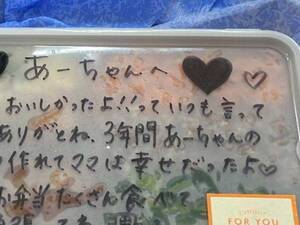 あーちゃんへ♥♡
おいしかったよ!!って いつも言って
ありがとね、3年間 あーちゃんの
作れてママは幸せだったよ♡
お弁当たくさん食べて
FOR YOU